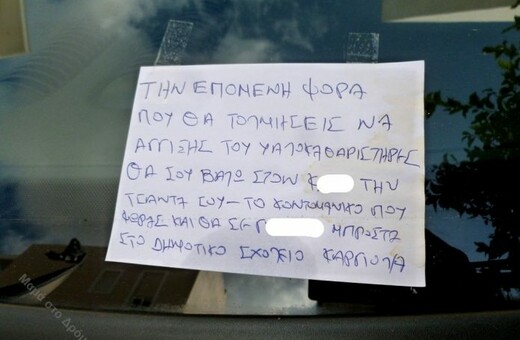 ΤΗΝ ΕΠΟΜΕΝΗ ΦΟΡΑ
ΠΟΥ ΘΑ ΤΟΛΜΗΣΕΙΣ ΝΑ
ΑΓΓΙΣΗΣ ΤΟΥ ΥΑΛΟΚΑΘΑΡΙΣΤΗΡΕΣ
ΘΑ ΣΟΥ ΒΑΛΩ ΣΤΟΝ Κ ΤΗΝ
ΤΣΑΝΤΑ ΣΟΥ - ΤΟ ΚΟΝΤΟΜΑΝΙΚΟ ΠΟΥ
ΦΟΡΑΣ ΚΑΙ ΘΑ ΣΕ Γ ΜΠΡΟΣΤΑ
ΣΤΟ ΔΗΜΟΤΙΚΟ ΣΧΟΛΕΙΟ
Μαμά στο Δρόμο